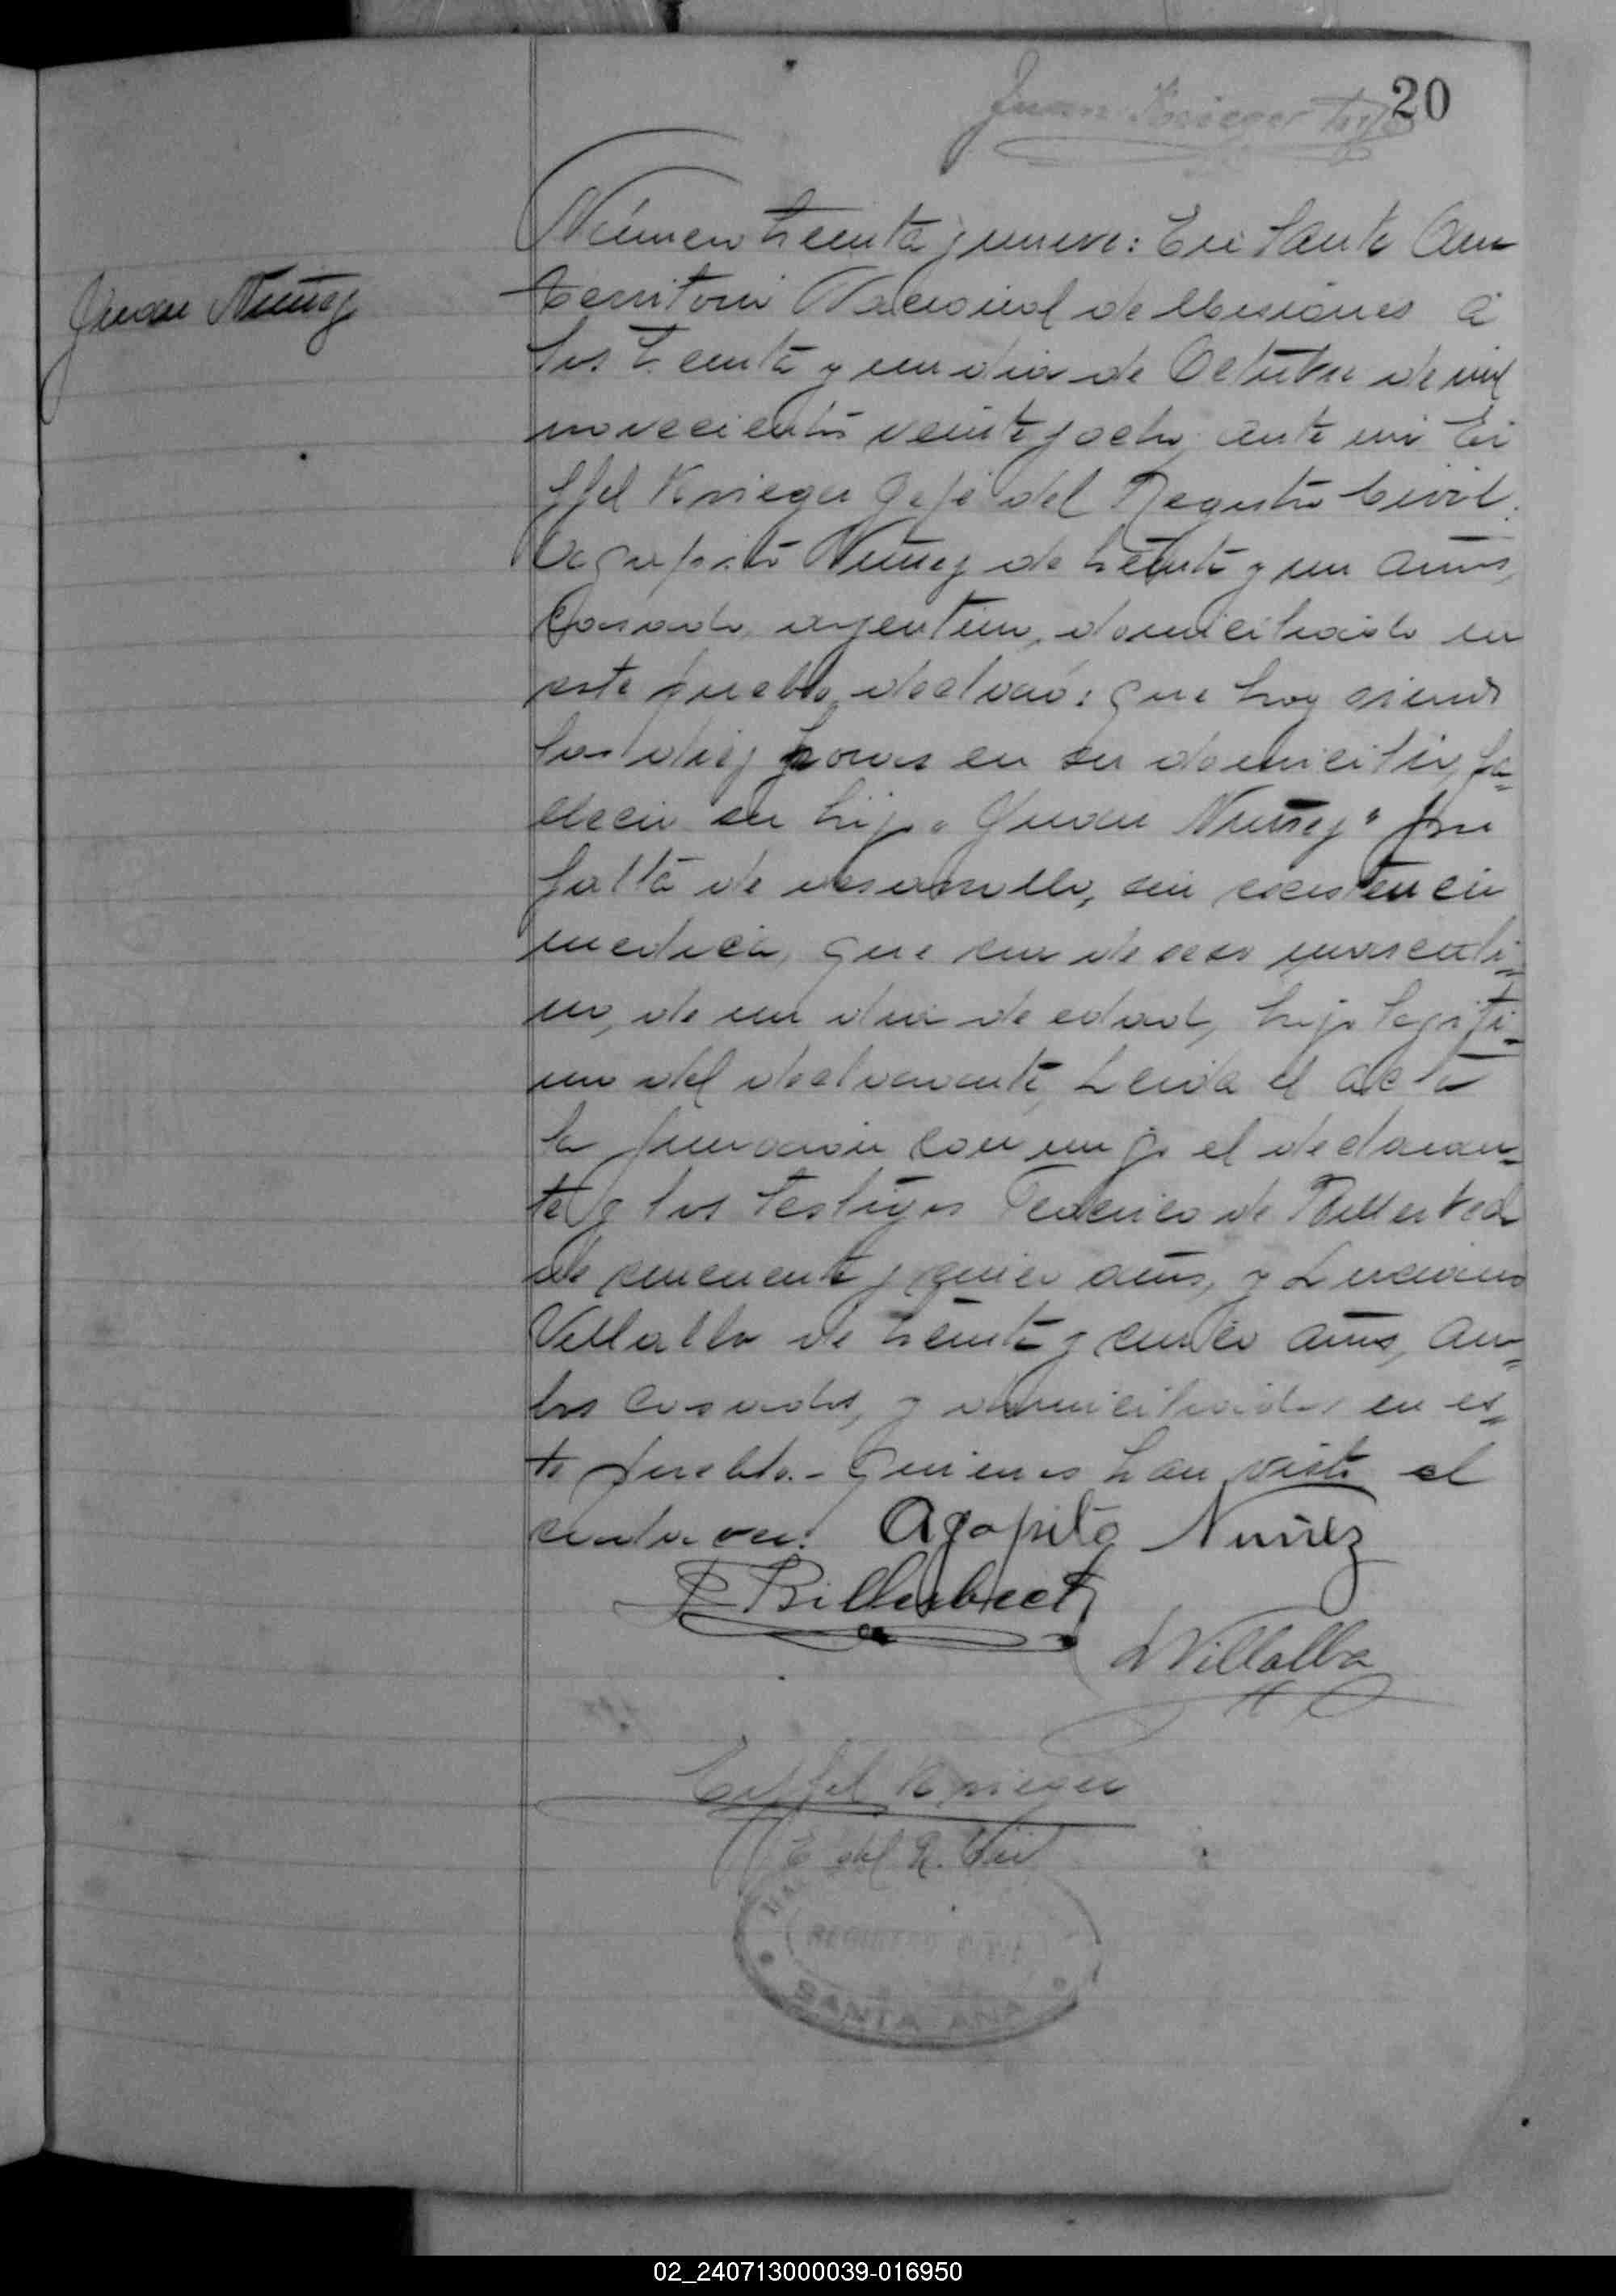 20
Juan Krieger hijo
Juan Nuñez
Número treinta y nueve: En Santa Ana
territorio Nacional de Misiones á
los treinta y un dia de Octubre de mil
novecientos veinte y ocho, ante mi Ei
ffel Krieger Jefe del Registro Civil.
Agapito Nuñez de treinta y un años,
Casado, argentino, domiciliado en
este pueblo, declaró: que hoy siendo
las diez horas en su domicilio, fa=
llecio su hijo "Juan Nuñez" por
falta de desarrollo, sin
medica, que era de sexo masculi=
no, de un dia de edad, hijo legiti=
mo del declarante, Leida el acta
la firmaron conmigo el declaran=
te y los testigos Federico de Billerbeck
de cincuenta y años, y Luciano
Villalba de treinta y cinco años, am=
bos casados, y domiciliados en es=
te pueblo.- quienes han visto el
cadaver. Agapito Nuñez
Billerbeck
L Villalba
Eiffel Krieger
E. del R. Civil
REGISTRO CIVIL
SANTA ANA
02_240713000039-016950